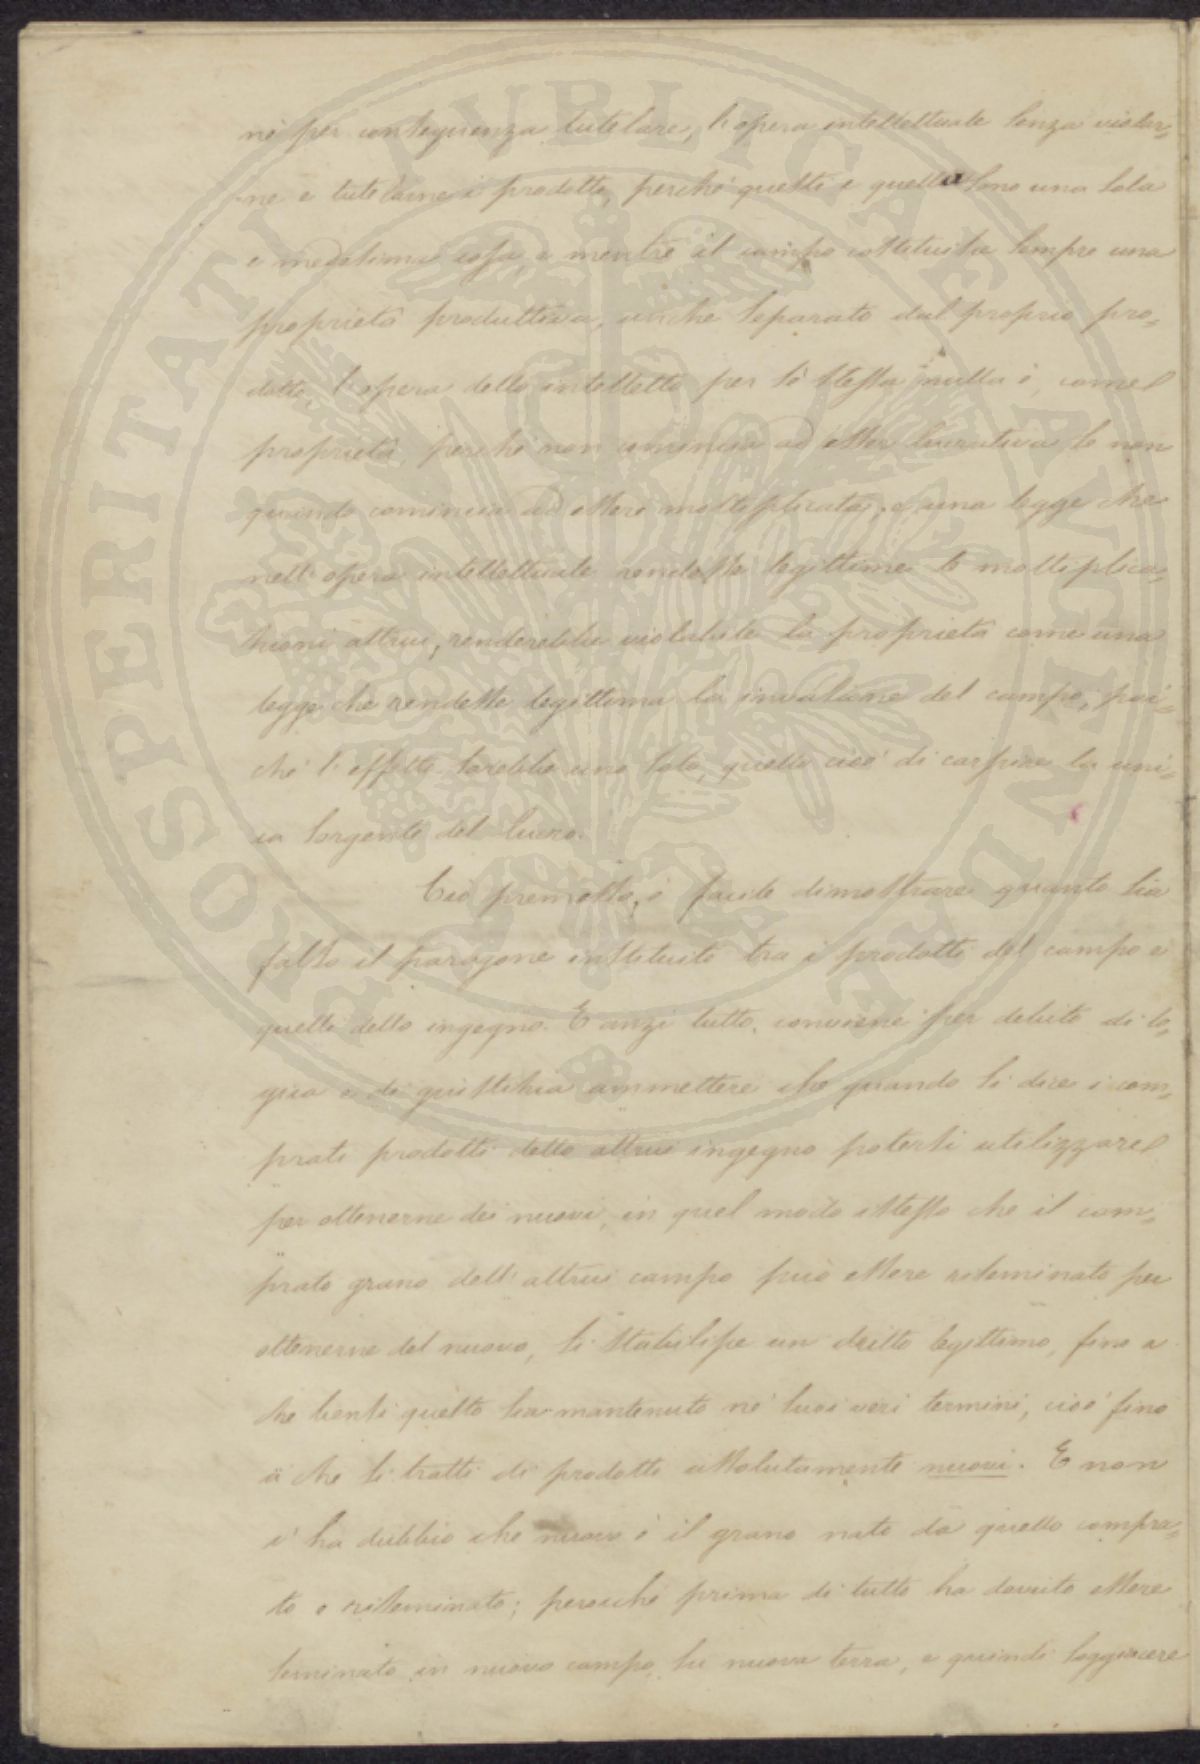 nè per conseguenza tutelare, l'opera intellettuale senza violar=
ne e tutelarne i prodotti, perché questi e quella sono una sola
e medesima cosa, e mentre il campo costituisce sempre una
proprietà produttiva, anche separato dal proprio pro=
dotto, l'opera dello intelletto per sè stessa nulla è, come
proprietà perché non comincia ad esser lucrativa se non
quando comincia ad essere moltiplicata; e una legge che
nell'opera intellettuale rendesse legittime le moltiplica=
zioni altrui, renderebbe violabile la proprietà come una
legge che rendesse legittima la invasione del campo, poi=
ché l'effetto sarebbe uno solo, quello cioè di carpire la uni=
ca sorgente del lucro.
Ciò premesso, è facile dimostrare quanto sia
falso il paragone instituito tra i prodotti del campo e
quelli dello ingegno. E anzi tutto, conviene per debito di lo=
gica e di giustizia ammettere che quando si dice i com=
prati prodotti dello altrui ingegno potersi utilizzare
per ottenerne dei nuovi, in quel modo istesso che il com=
prato grano dell'altrui campo può essere riseminato per
ottenerne del nuovo, si stabilisce un dritto legittimo, fino a
che bensì questo sia mantenuto nè suoi veri termini, cioè fino
a che si tratti di prodotti assolutamente nuovi. E non
v'ha dubbio che nuovo è il grano nato da quello compra=
to e riseminato; perocché prima di tutto ha dovuto essere
seminato in nuovo campo, su nuova terra, e quindi soggiacere